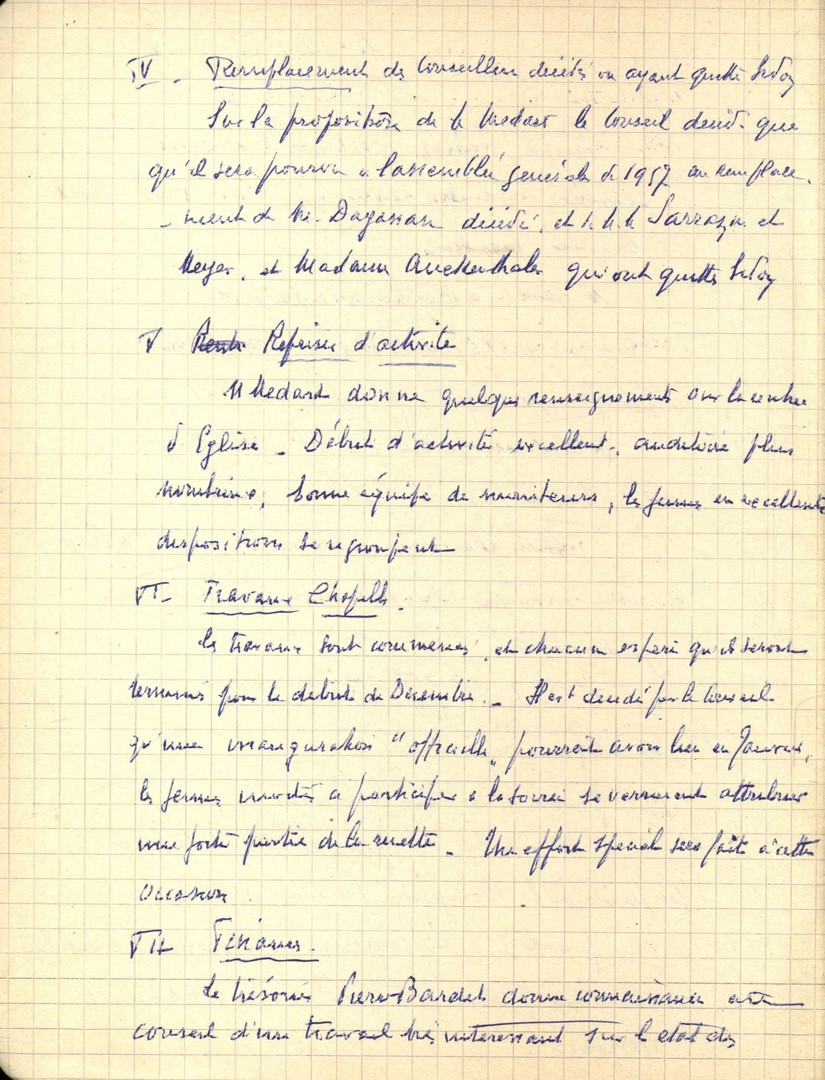 IV - Remplacement des Conseillers décédés ou ayant quitté
Sur la proposition de M. Medard le Conseil décide que
qu'il sera pourvu à l'assemblée générale de 1957 au remplace-
-ment de M. décédé, et de M.M. Sarrazin et
Meyer, et Madame Auckenthaler qui ont quitté
V Reprise d'activité
M Medard donne quelques renseignements sur la rentrée
d'Eglise - Début d'activité excellent, auditoire plus
nombreux, bonne équipe de moniteurs, les jeunes en excellentes
dispositions se regroupent
VI - Travaux Chapelle.
Les travaux sont commencés, et chacun espère qu'ils seront
terminés pour le début de Décembre. - Il est décidé par le Conseil
qu'une inauguration "officielle" pourrait avoir lieu en Janvier,
les jeunes invités à participer à la soirée se verraient attribuer
une forte partie de la recette - Un effort spécial sera fait à cette
occasion.
VII Finances.
Le trésorier Pierre Bardet donne connaissance au
conseil d'un travail très intéressant sur l'état des